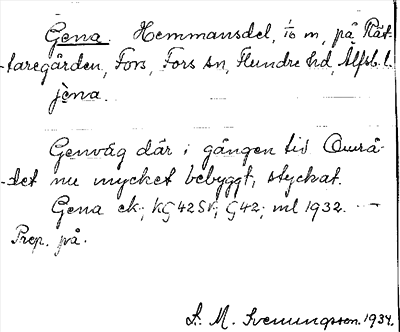 Gena. Hemmansdel, 1/10 m, på Rät-
taregården, Fors, Fors sn, Flundre hd, Älfsb. l.
jèna.
Genväg där i gången tid Områ-
det nu mycket bebyggt, styckat.
Gena ek., KG 42 SV, G 42, ml 1932. —
Prep. på.
S. M. Svenungsson. 1934.